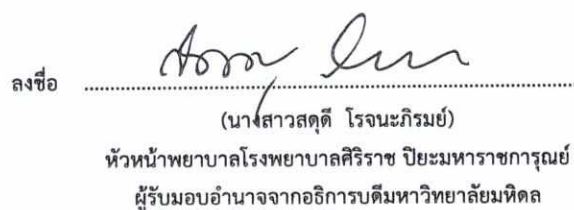 ลงชื่อ ........................................................................
(นางสาวสดุดี โรจนะภิรมย์)
หัวหน้าพยาบาลโรงพยาบาลศิริราช ปิยะมหาราชการุณย์
ผู้รับมอบอำนาจจากอธิการบดีมหาวิทยาลัยมหิดล